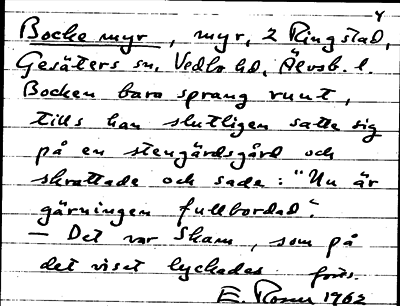 4
Bocke myr, myr, 2 Ringstad,
Gesäters sn, Vedbo hd, Älvsb. l.
Bocken bara sprang runt,
tills han slutligen satte sig
på en stengärdsgård och
skrattade och sade: "Nu är
gärningen fullbordad".
— Det var Skam, som på
det viset lyckades forts.
E. Rosm 1962